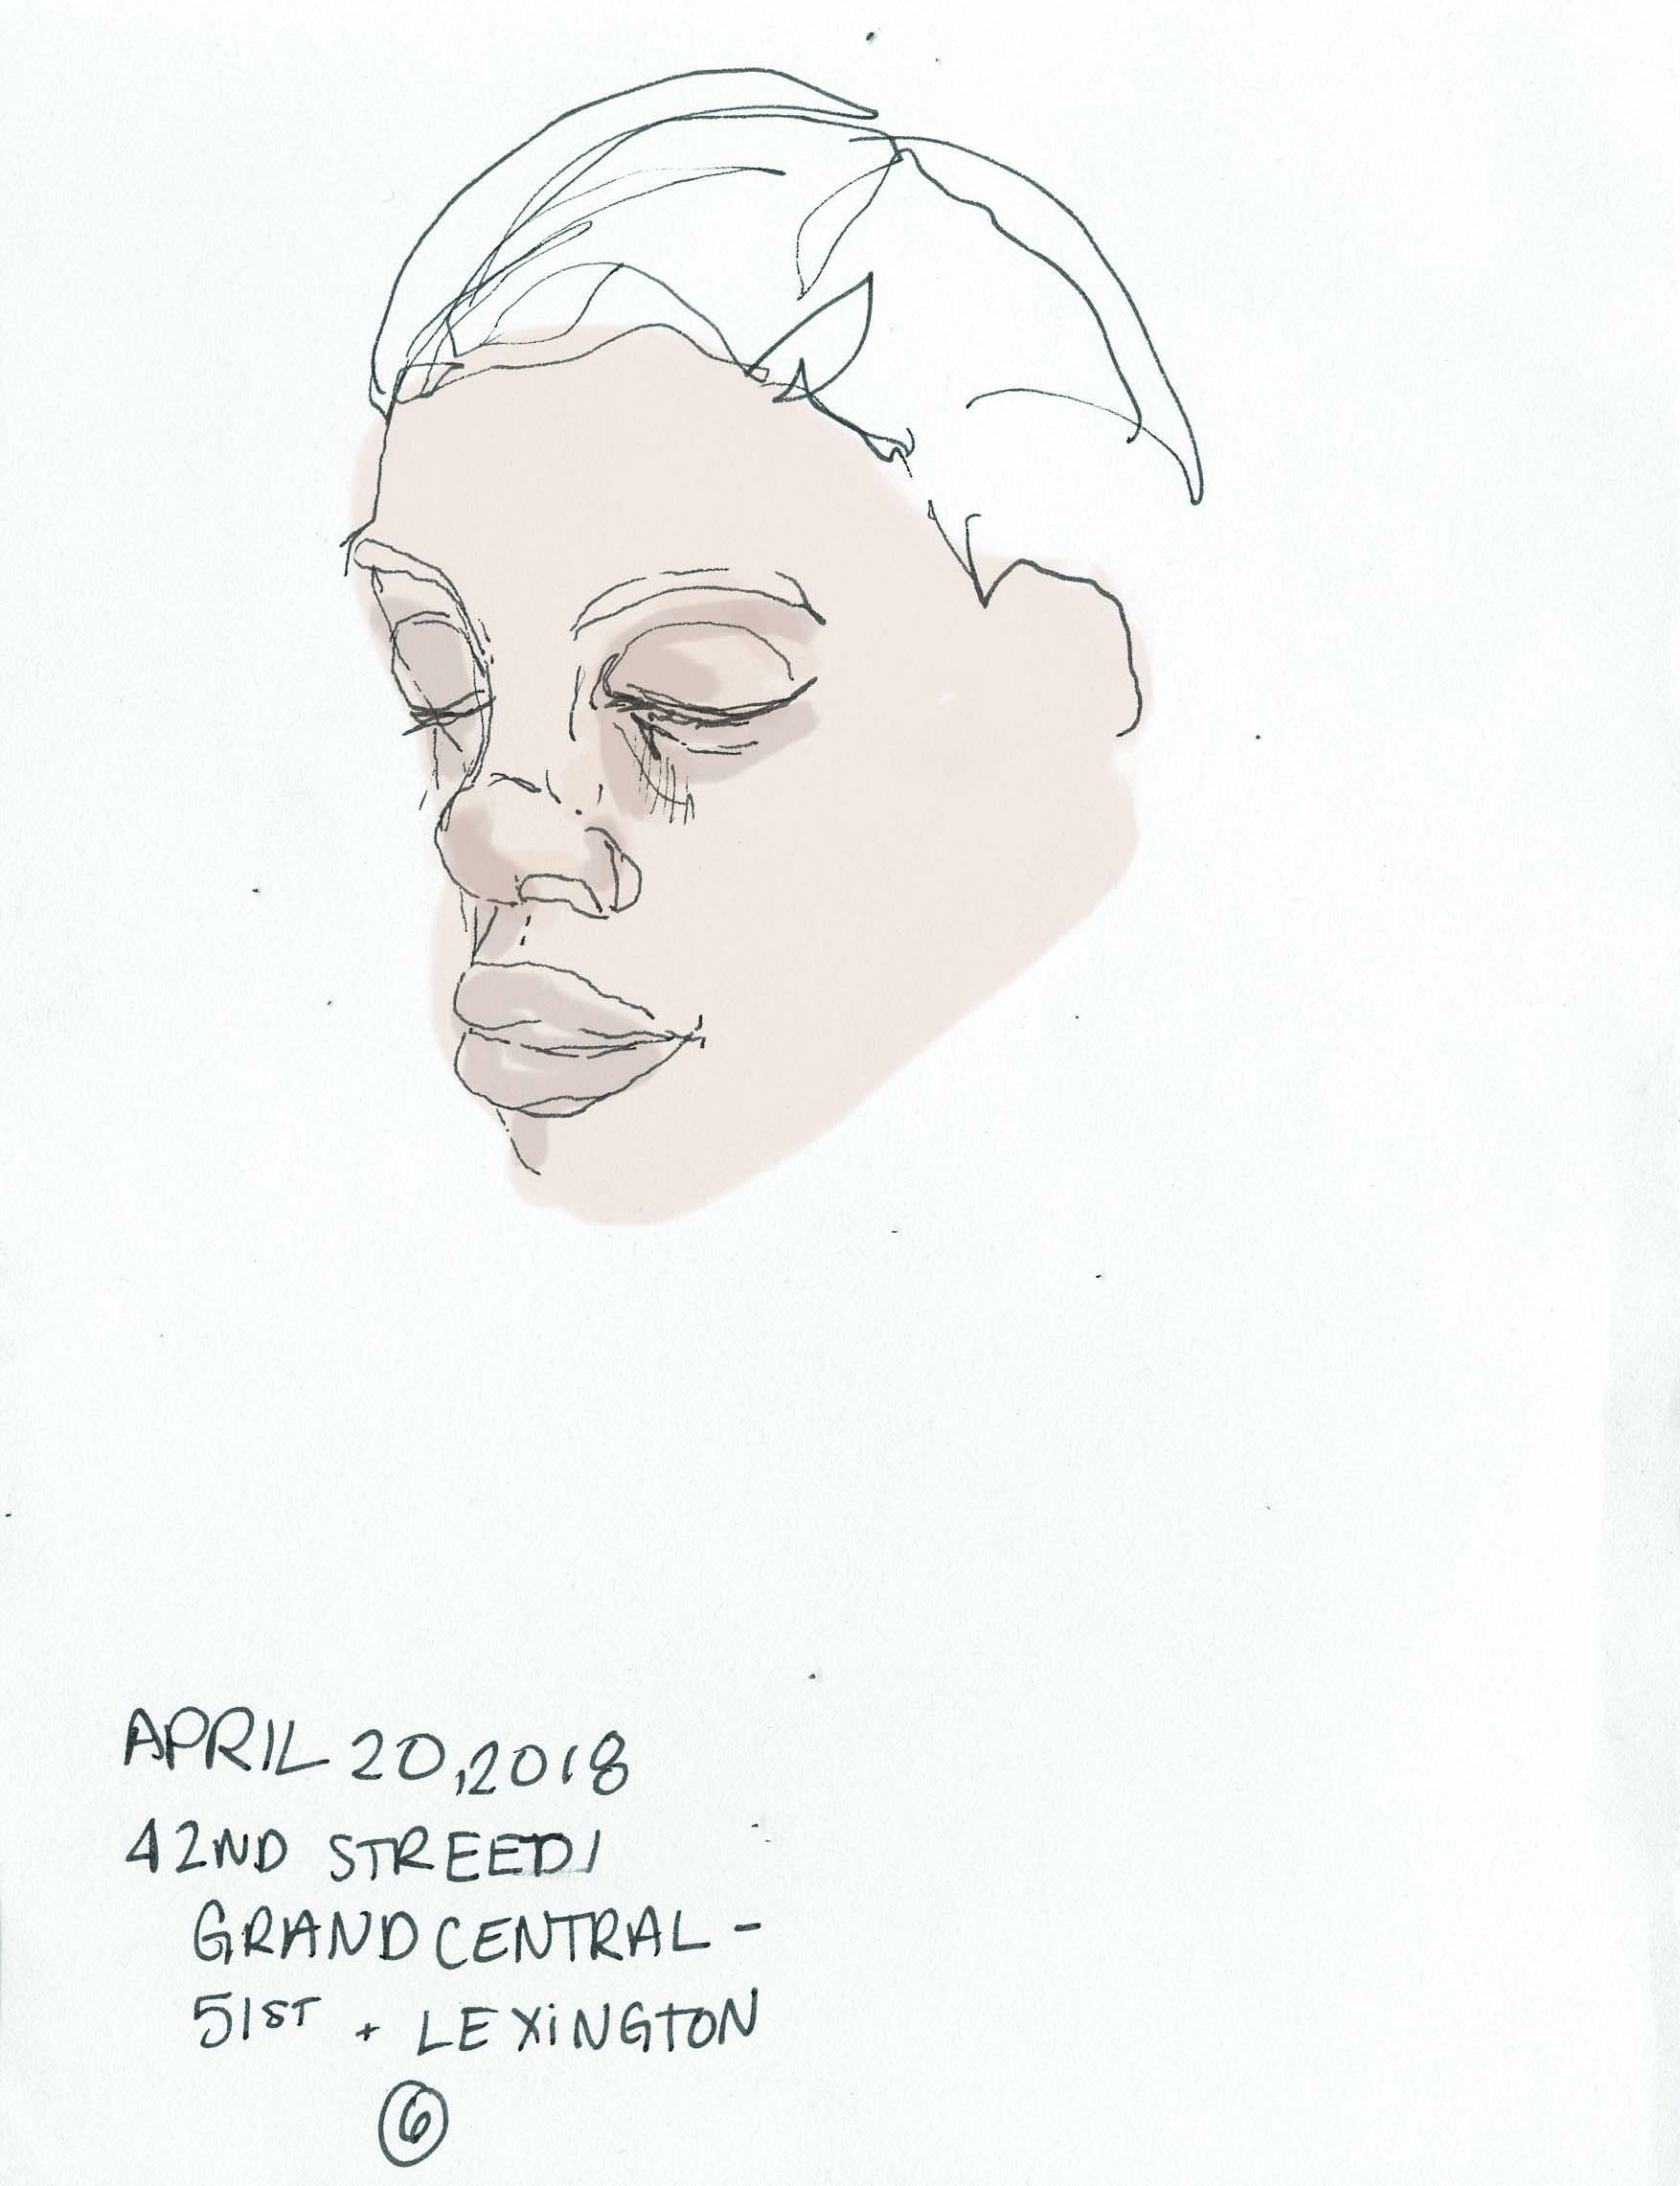 APRIL 20, 2018
42ND STREET/
GRAND CENTRAL -
51ST + LEXINGTON
6